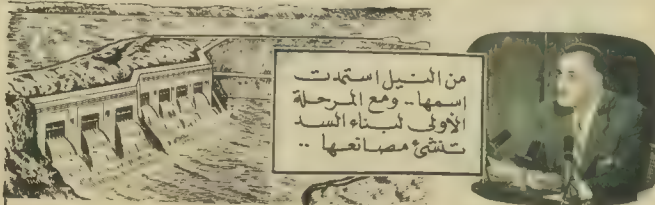 من النيل استمدت
إسمها - ومع المرحلة
الأولى لبناء السد
تنشئ مصانعها ..